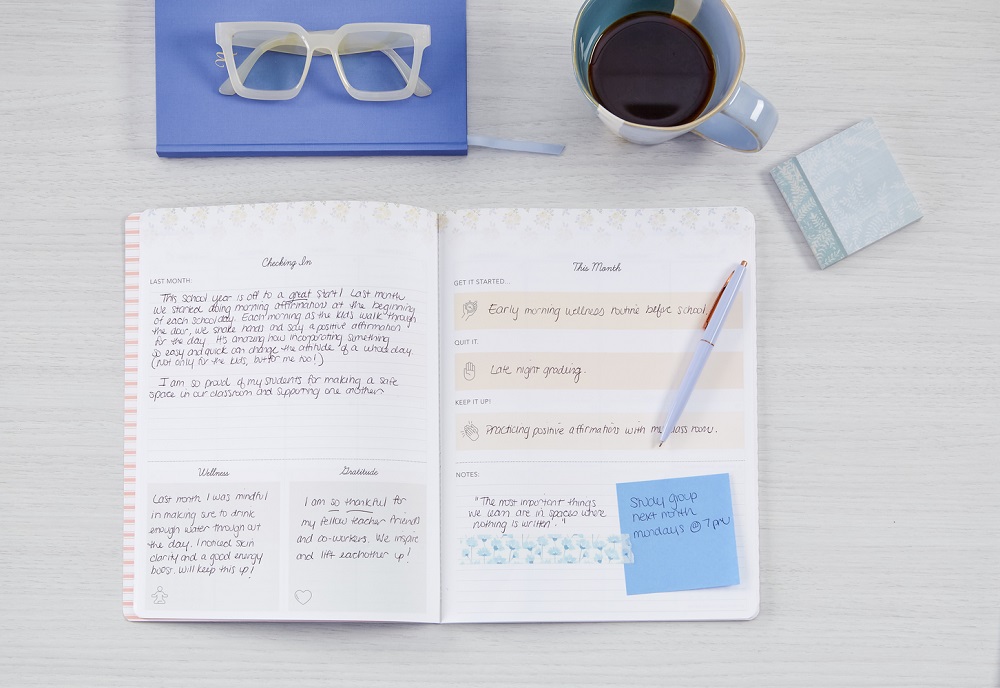 Checking In
LAST MONTH:
This school year is off to a great start! Last month
we started doing morning affirmation at the beginning
of each school day. Each morning as the kids walk through
the door, we shake hands and say a positive affirmation
for the day. It's amazing how incorporating something
so easy and quick can change the attitude of a whole day.
(Not only for the kids, but for me too!)
I am so proud of my students for making a safe
space in our classroom and supporting one another.
Wellness
Last month I was mindful
in making sure to drink
enough water throughout
the day. I noticed skin
clarity and a good energy
boost. Will keep this up!
Gratitude
I am so thankful for
my fellow teacher friends
and co-workers. We inspire
and lift eachother up!
This Month
GET IT STARTED...
Early morning wellness routine before school.
QUIT IT.
Late night grading.
KEEP IT UP!
Practicing positive affirmations with my class room.
NOTES:
"The most important things
we learn are in spaces where
nothing is written."
Study group
next month
mondays @ 7pm